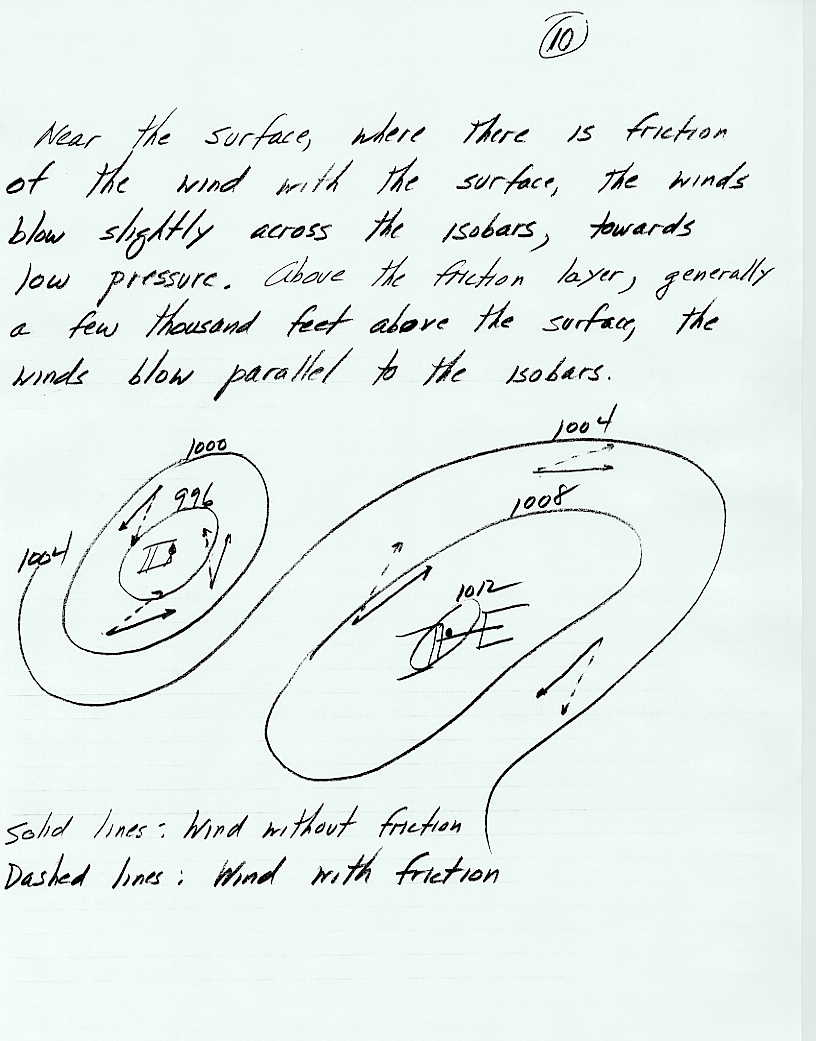 10
Near the surface, where there is friction
of the wind with the surface, the winds
blow slightly across the isobars, towards
low pressure. Above the friction layer, generally
a few thousand feet above the surface, the
winds blow parallel to the isobars.
1004
1000
1008
996
1004
1012
Solid lines: Wind without friction
Dashed lines: Wind with friction